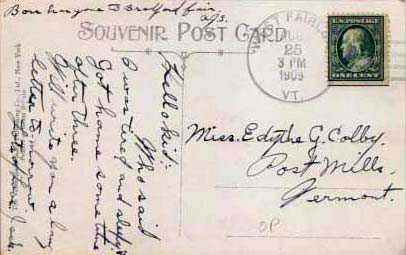 Bon
to Bradford fair,
SOUVENIR POST CARD
WEST FAIRLEE
AUG
25
3 PM
1909
VT.
U.S. POSTAGE
ONE CENT
Hello Kid:-
Who said
I was tired and sleepy?
Got home some time
after three.
Will write you a long
letter to-morrow
Jack.
Miss. Edythe G. Colby.
Post Mills.
Vermont.
Co., Ltd., New York
OP